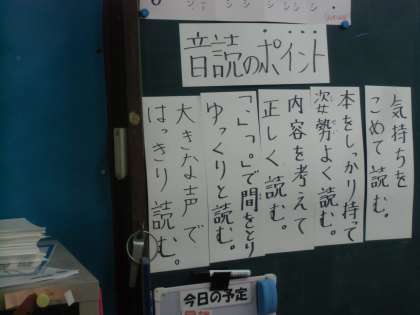 音読のポイント
気持ちを
こめて読む。
本をしっかり持って
姿勢よく読む。
内容を考えて
正しく読む。
「、」「。」で間をとり
ゆっくりと読む。
大きな声で
はっきり読む。
今日の予定